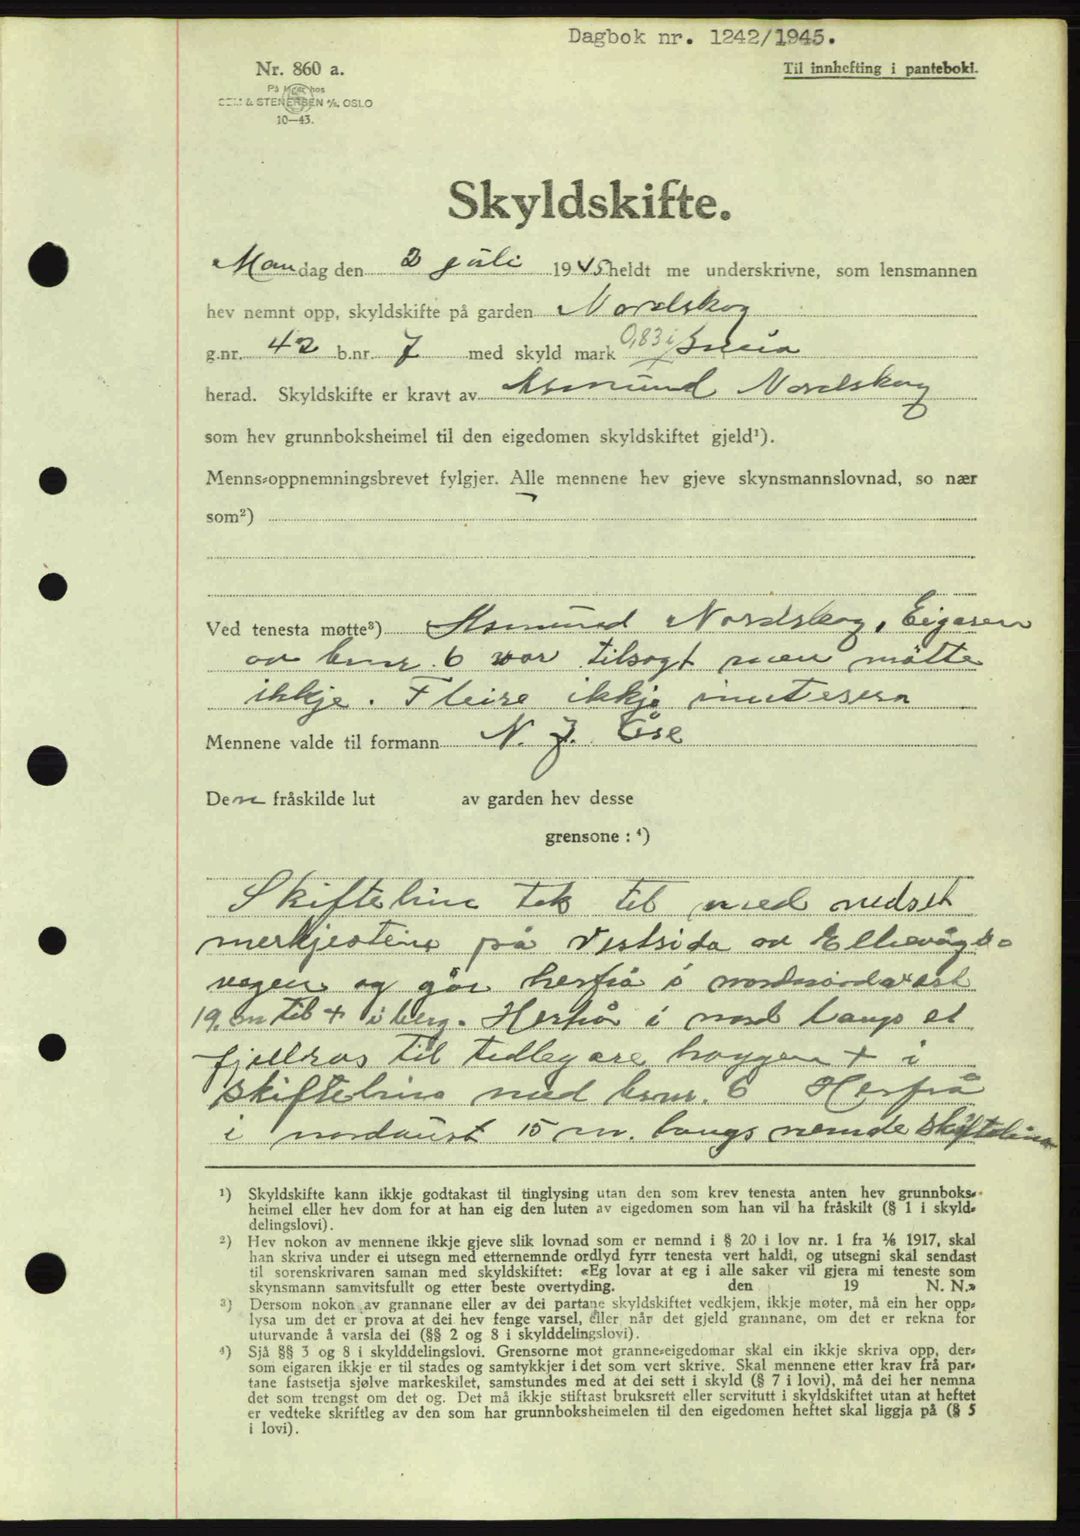 Dagbok nr. 1242/1945.
Nr. 860 a.
Til innhefting i panteboki.
På lager hos
SEM & STENERSEN A/S. OSLO
10—43.
Skyldskifte.
Mandag den 2 juli 1945 heldt me underskrivne, som lensmannen
hev nemnt opp, skyldskifte på garden Nordskog
g.nr. 42 b.nr. 7 med skyld mark 0,83 i Bneia
herad. Skyldskifte er kravt av Asmund Nordskog
som hev grunnboksheimel til den eigedomen skyldskiftet gjeld¹).
Menns-oppnemningsbrevet fylgjer. Alle mennene hev gjeve skynsmannslovnad, so nær
som²)
Ved tenesta møtte³) Asmund Nordskog, Eigaren
av bnr. 6 var tilsagt men møtte
ikkje. Fleire ikkje
Mennene valde til formann N. J. Öse
Den fråskilde lut av garden hev desse
grensone : ⁴)
Skiftelina tek til med nedset
merkjesteine på Vestsida av
vegen og går herfrå i
19. m til + i berg. Herfrå i nord langs et
fjellras til tidlegare hoggen + i
skiftelina med bnr. 6 Herfrå
i nordaust 15 m. langs nemde skiftelina
¹) Skyldskifte kann ikkje godtakast til tinglysing utan den som krev tenesta anten hev grunnboks-
heimel eller hev dom for at han eig den luten av eigedomen som han vil ha fråskilt (§ 1 i skyld-
delingslovi).
²) Hev nokon av mennene ikkje gjeve slik lovnad som er nemnd i § 20 i lov nr. 1 fra 1/6 1917, skal
han skriva under ei utsegn med etternemnde ordlyd fyrr tenesta vert haldi, og utsegni skal sendast
til sorenskrivaren saman med skyldskiftet: «Eg lovar at eg i alle saker vil gjera mi teneste som
skynsmann samvitsfullt og etter beste overtyding. den 19 N. N.»
³) Dersom nokon av grannane eller av dei partane skyldskiftet vedkjem, ikkje møter, må ein her opp-
lysa um det er prova at dei hev fenge varsel, eller når det gjeld grannane, om det er rekna for
uturvande å varsla dei (§§ 2 og 8 i skylddelingslovi).
⁴) Sjå §§ 3 og 8 i skylddelingslovi. Grensorne mot granne-eigedomar skal ein ikkje skriva opp, der-
som eigaren ikkje er til stades og samtykkjer i det som vert skrive. Skal mennene etter krav frå par-
tane fastsetja sjølve markeskilet, samstundes med at dei sett i skyld (§ 7 i lovi), må dei her nemna
det som trengst om det og. Det må ikkje stiftast bruksrett eller servitutt i skyldskiftet utan at heftet
er vedteke skriftleg av den som har grunnboksheimelen til den eigedomen heftet skal liggja på (§ 5
i lovi).